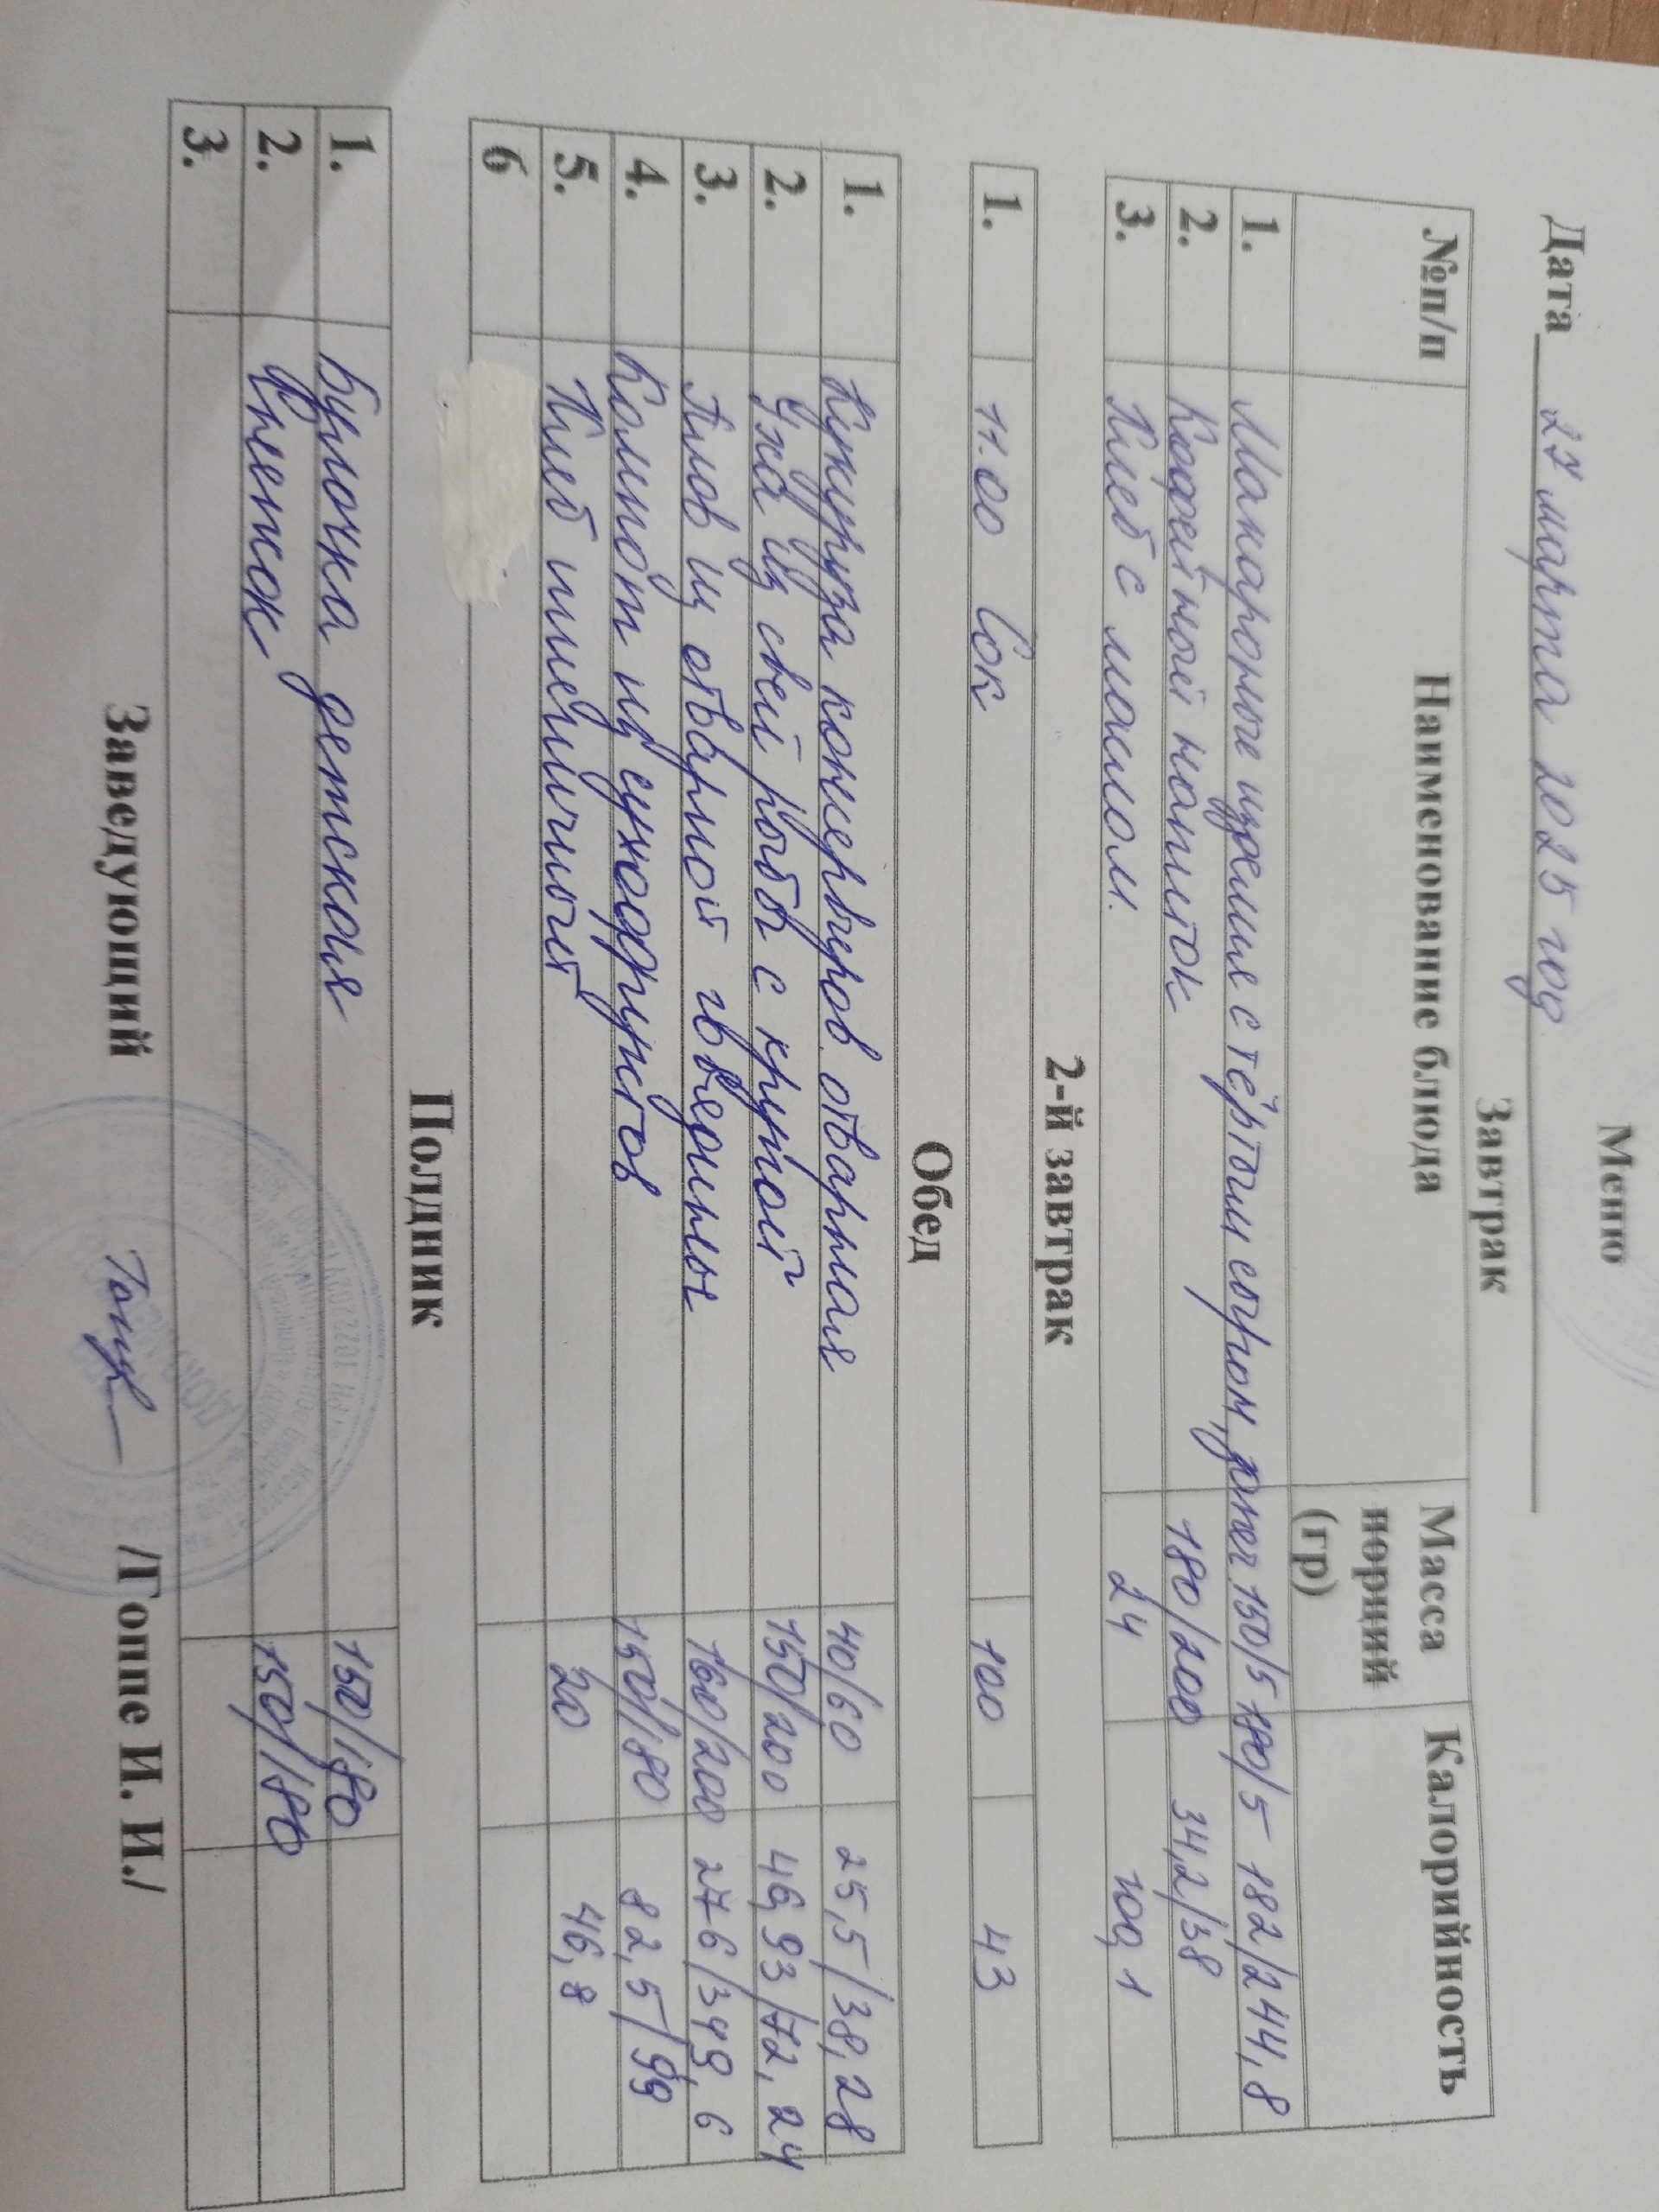 Меню
Дата 27 марта 2025 год
Завтрак
№п/п Наименование блюда Масса порций (гр) Калорийность
1. Макаронные изделия с тёртым сыром, 150/5 180/5 182/244,8
2. Кофейный напиток 180/200 34,2/38
3. Хлеб с маслом. 24 100,1
2-й завтрак
1. 11.00 Сок 100 43
Обед
1. Кукуруза консервиров. отварная 40/60 25,5/38,28
2. Уха из свей рыбы с крупой 150/200 46,93/72,24
3. Плов из отварной говядины 160/200 276/349,6
4. Компот из сухофруктов 150/180 82,5/99
5. Хлеб пшеничный 20 46,8
6
Полдник
1. Булочка детская 150/180
2. Снежок 150/180
3.
Заведующий /Гоппе И. И./